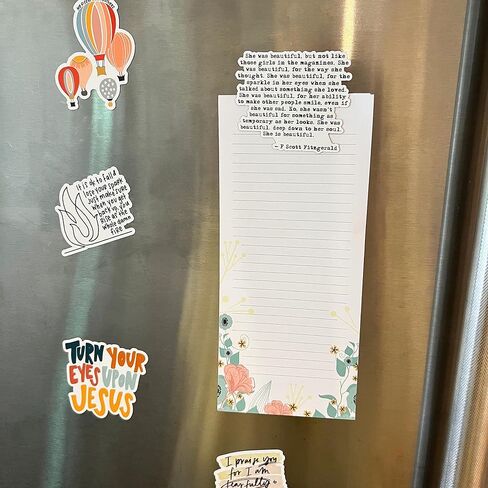 She was beautiful, but not like
those girls in the magazines. She
was beautiful, for the way she
thought. She was beautiful, for the
sparkle in her eyes when she
talked about something she loved.
She was beautiful, for her ability
to make other people smile, even if
she was sad. No, she wasn't
beautiful for something as
temporary as her looks. She was
beautiful, deep down to her soul.
She is beautiful.
- F Scott Fitzgerald
It is ok to fall &
lose your spark
Just make sure
when you get
back up, you
rise as the
whole damn
fire
TURN YOUR
EYES UPON
JESUS
I praise you
for I am
fearfully